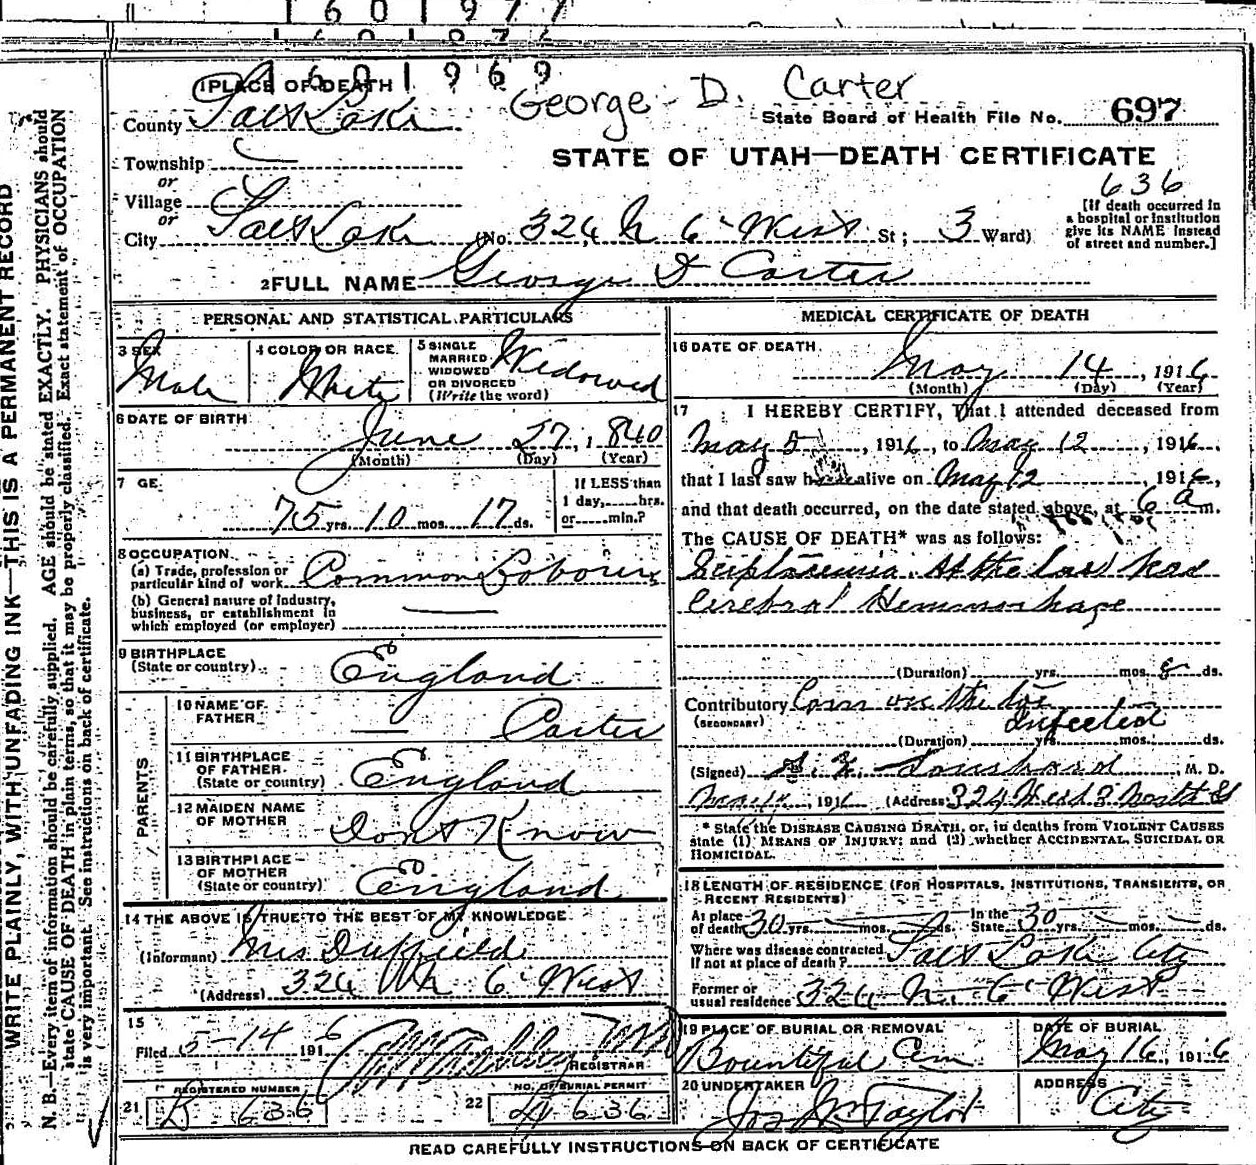 1601977
1601969
George D. Carter
1 PLACE OF DEATH
County Salt Lake
State Board of Health File No. 697
Township
STATE OF UTAH—DEATH CERTIFICATE
or
Village
636
or
City Salt Lake (No. 324 N 6 West St; 3 Ward)
[If death occurred in
a hospital or institution
give its NAME instead
of street and number.]
2 FULL NAME George D Carter
PERSONAL AND STATISTICAL PARTICULARS
3 SEX Male
4 COLOR OR RACE White
5 SINGLE
MARRIED
WIDOWED
OR DIVORCED
(Write the word)
Widowed
6 DATE OF BIRTH
June 27, 1840
(Month) (Day) (Year)
7 GE
75 yrs. 10 mos. 17 ds.
If LESS than
1 day, hrs.
or min.?
8 OCCUPATION
(a) Trade, profession or
particular kind of work Common Laborer
(b) General nature of Industry,
business, or establishment in
which employed (or employer)
9 BIRTHPLACE
(State or country) England
PARENTS
10 NAME OF
FATHER Carter
11 BIRTHPLACE
OF FATHER
(State or country) England
12 MAIDEN NAME
OF MOTHER Dont Know
13 BIRTHPLACE
OF MOTHER
(State or country) England
14 THE ABOVE IS TRUE TO THE BEST OF MY KNOWLEDGE
(Informant) Mrs Duffield
(Address) 324 6 West
15
Filed 5-14 1916
REGISTRAR
REGISTERED NUMBER
21 D 636
NO. OF BURIAL PERMIT
22 636
MEDICAL CERTIFICATE OF DEATH
16 DATE OF DEATH
May 14, 1916
(Month) (Day) (Year)
17 I HEREBY CERTIFY, That I attended deceased from
May 5, 1916, to May 12, 1916,
that I last saw h alive on May 12, 1916,
and that death occurred, on the date stated above, at 6 a m.
The CAUSE OF DEATH* was as follows:
At the last had
Cerebral Hemmorhage
(Duration) yrs. mos. 8 ds.
Contributory Corn on the toe
(SECONDARY) Infected
(Duration) yrs. mos. ds.
(Signed) M. D.
May 14, 1916 (Address) 324 West 3 North St
* State the DISEASE CAUSING DEATH, or, in deaths from VIOLENT CAUSES
state (1) MEANS OF INJURY; and (2) whether ACCIDENTAL, SUICIDAL OR
HOMICIDAL.
18 LENGTH OF RESIDENCE (FOR HOSPITALS, INSTITUTIONS, TRANSIENTS, OR
RECENT RESIDENTS)
At place
of death 30 yrs. mos. ds. In the
State 30 yrs. mos. ds.
Where was disease contracted
If not at place of death? Salt Lake City
Former or
usual residence 324 N. 6 West
19 PLACE OF BURIAL OR REMOVAL
Bountiful Cem
DATE OF BURIAL
May 16, 1916
20 UNDERTAKER
Jos Wm Taylor
ADDRESS
City
READ CAREFULLY INSTRUCTIONS ON BACK OF CERTIFICATE
WRITE PLAINLY, WITH UNFADING INK—THIS IS A PERMANENT RECORD
N. B.—Every item of information should be carefully supplied. AGE should be stated EXACTLY. PHYSICIANS should
state CAUSE OF DEATH in plain terms, so that it may be properly classified. Exact statement of OCCUPATION
is very important. See instructions on back of certificate.